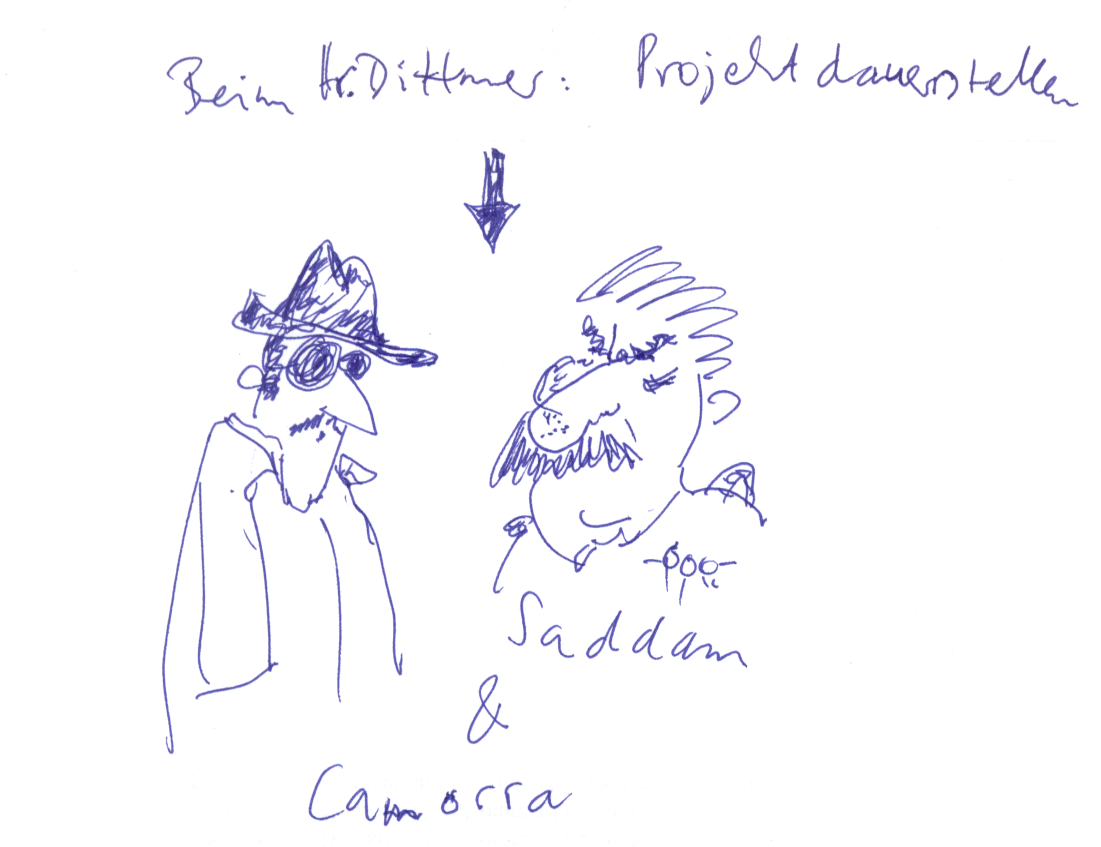 Beim Hr. Dittmer: Projektdauerstellen
Saddam
&
Camorra